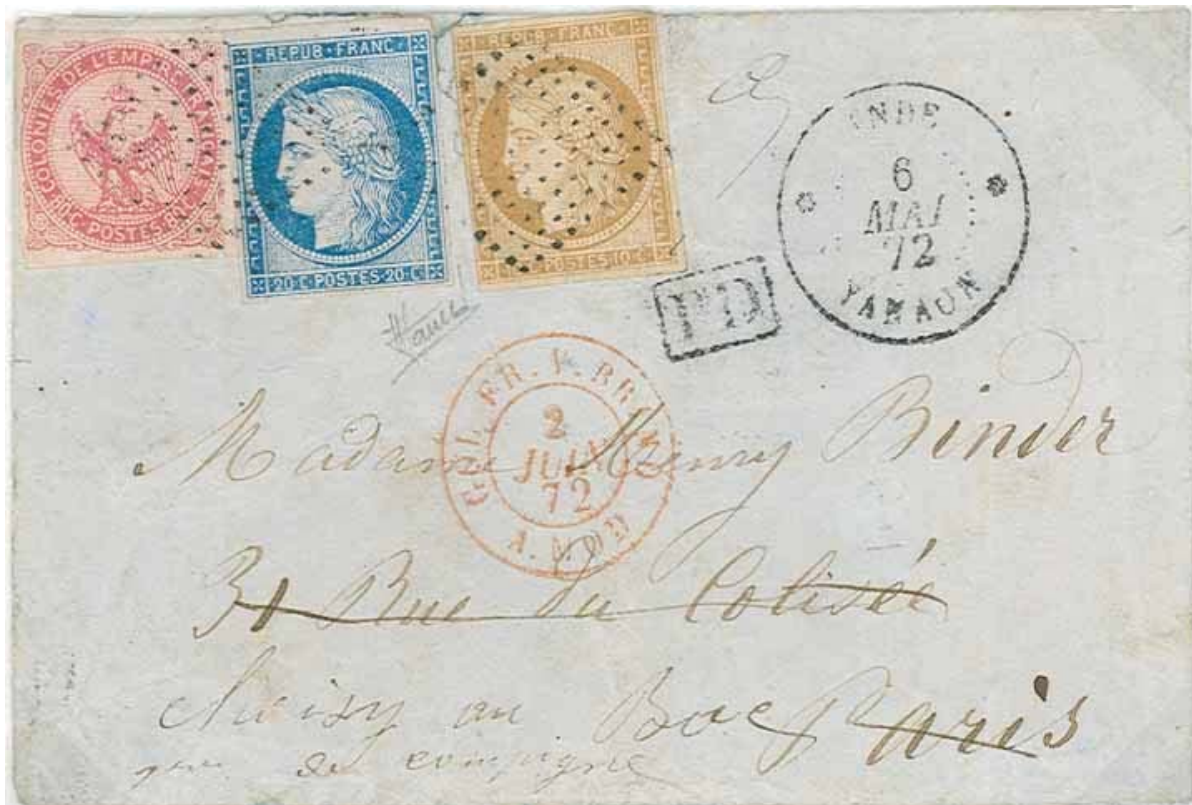 COLONIES DE L'EMPIRE FRANÇAIS
80C POSTES 80C
REPUB FRANC
20 C POSTES 20 C
REPUB FRANC
10 C POSTES 10 C
INDE
6
MAI
72
YANAON
PD
COL. FR. P. BRIND
2
JUIN
72
A. MOD
Madame Henry Binder
31 Rue du Colisée
Choisy au Bac Paris
de compiegne